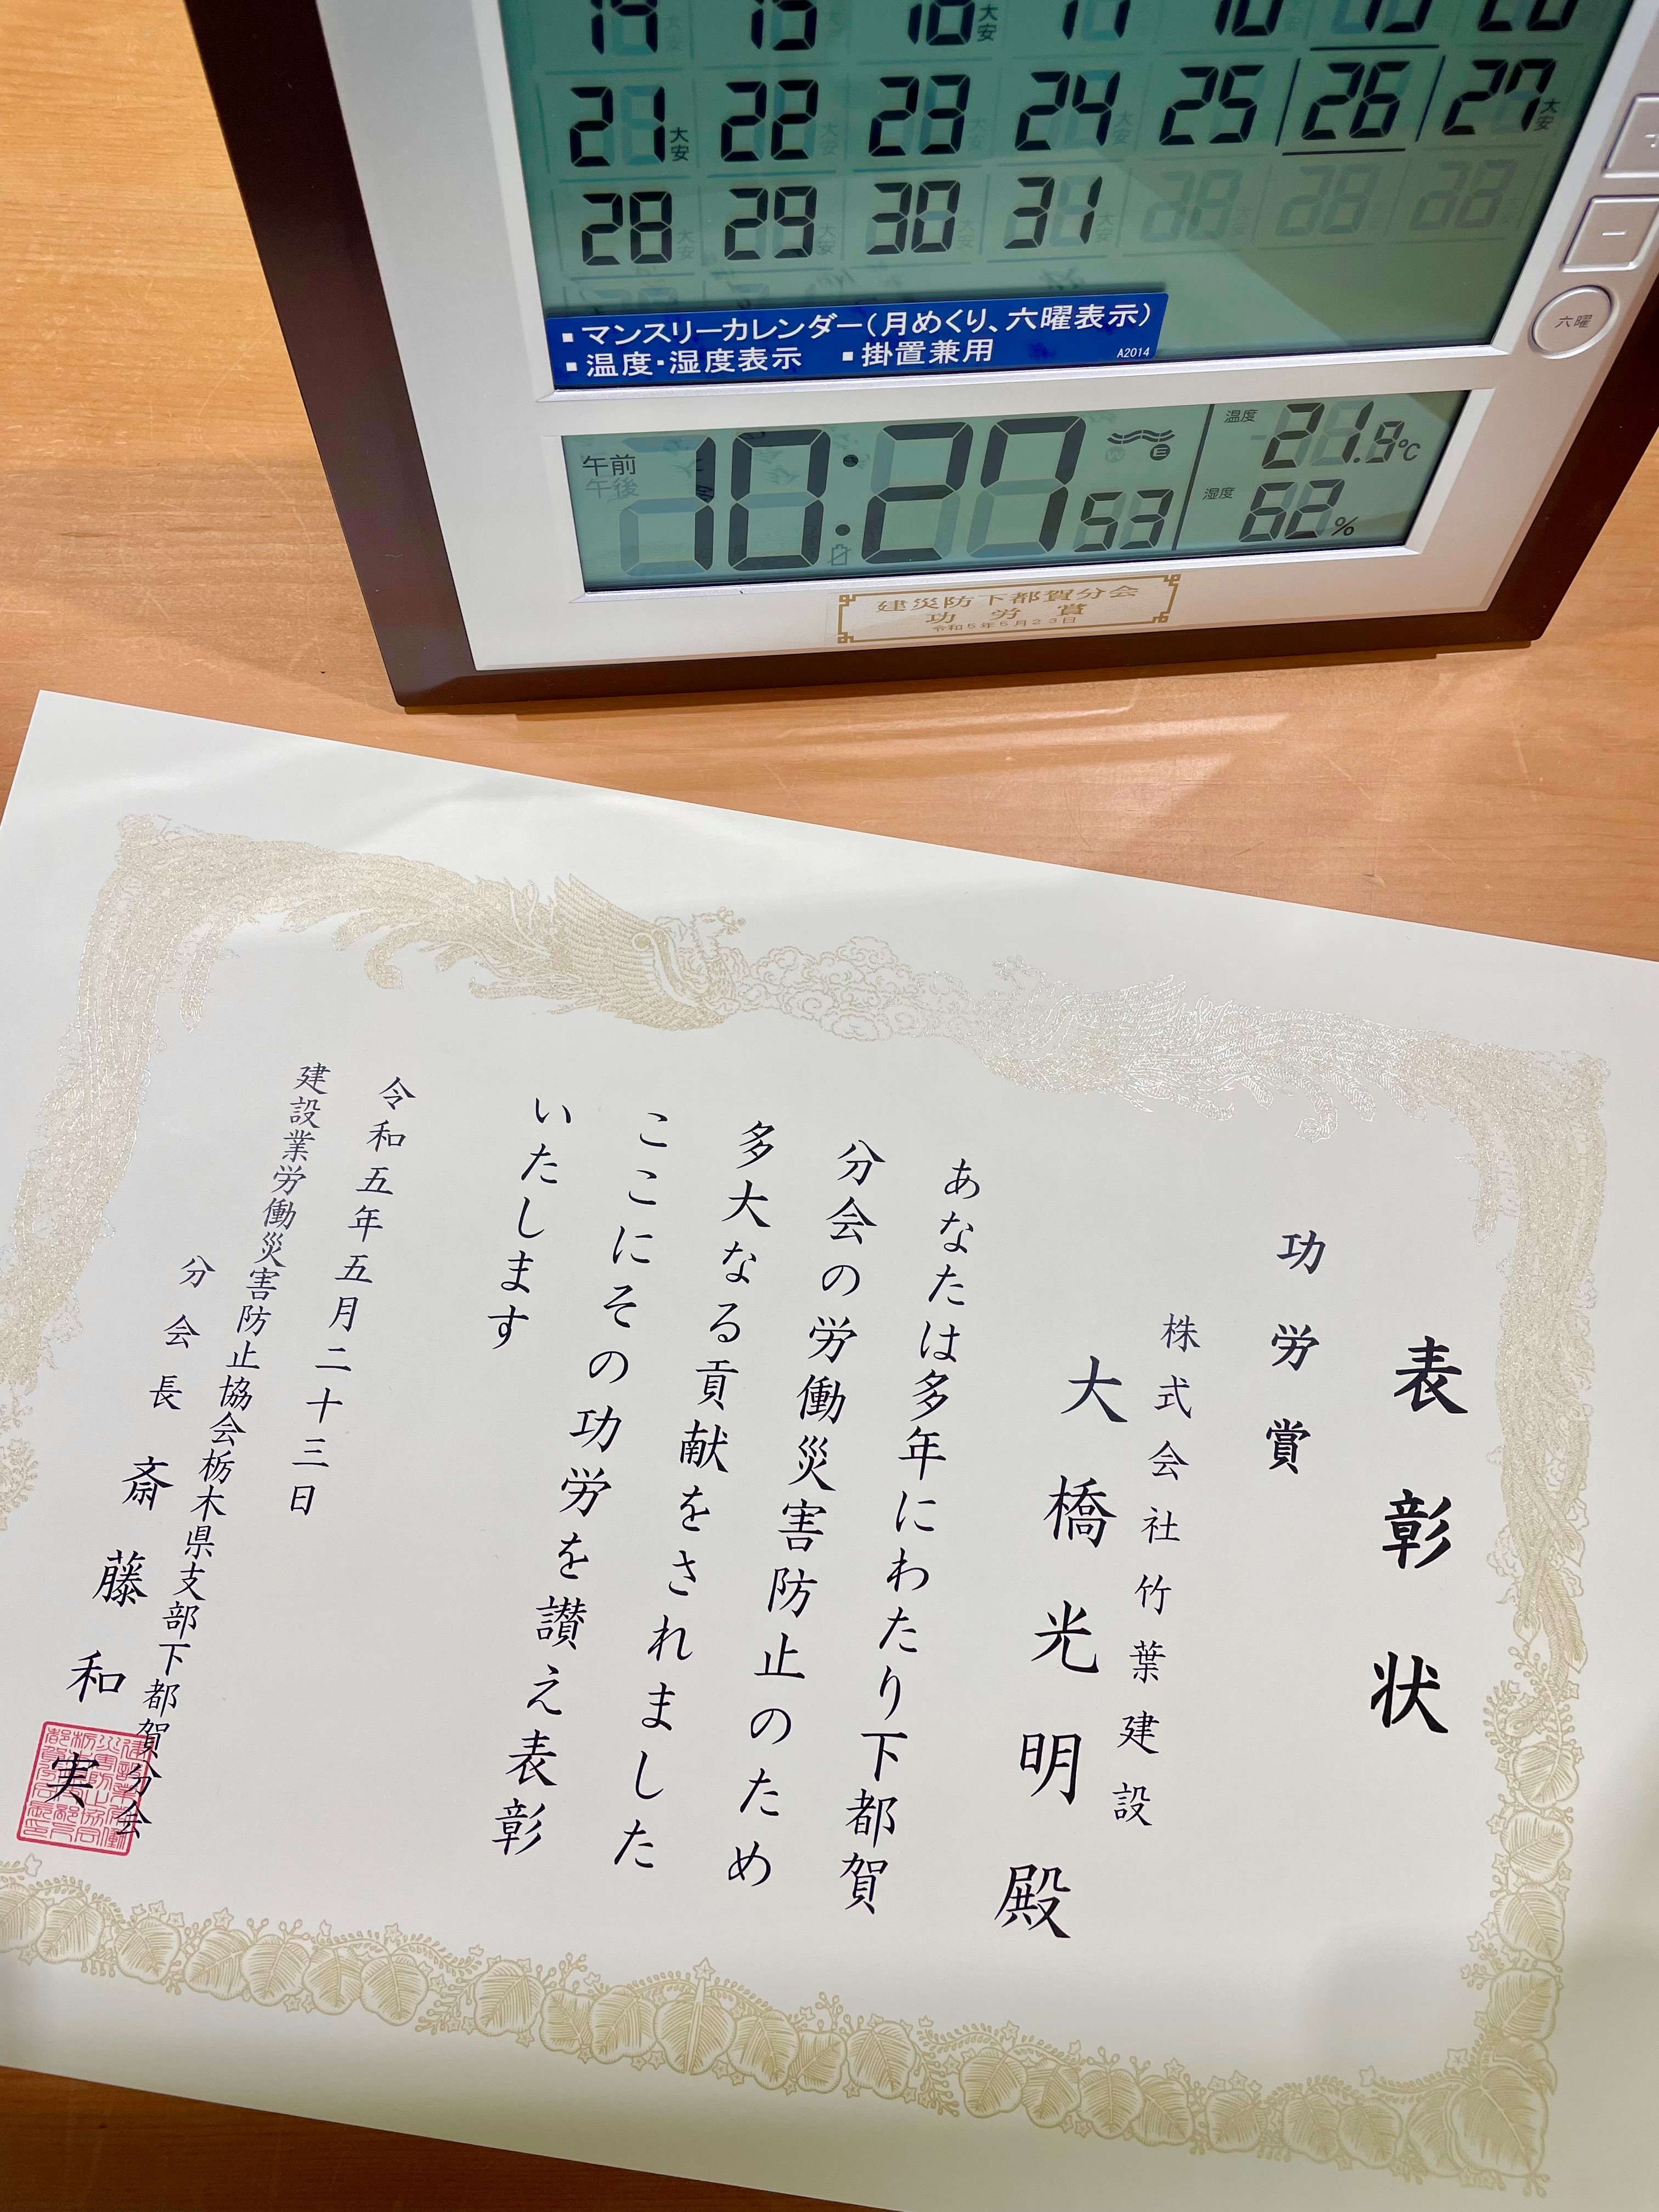 21 大安 22 23 24 25 26 27 大安
28 29 30 31
▪マンスリーカレンダー(月めくり、六曜表示)
▪温度・湿度表示 ▪掛置兼用
A2014
+
-
六曜
午前 10:27 53
温度 21.9℃
湿度 62%
建災防下都賀分会
功労賞
令和5年5月23日
表彰状
功労賞
株式会社竹葉建設
大橋光明殿
あなたは多年にわたり下都賀
分会の労働災害防止のため
多大なる貢献をされました
ここにその功労を讃え表彰
いたします
令和五年五月二十三日
建設業労働災害防止協会栃木県支部下都賀分会
分会長 斎藤和実